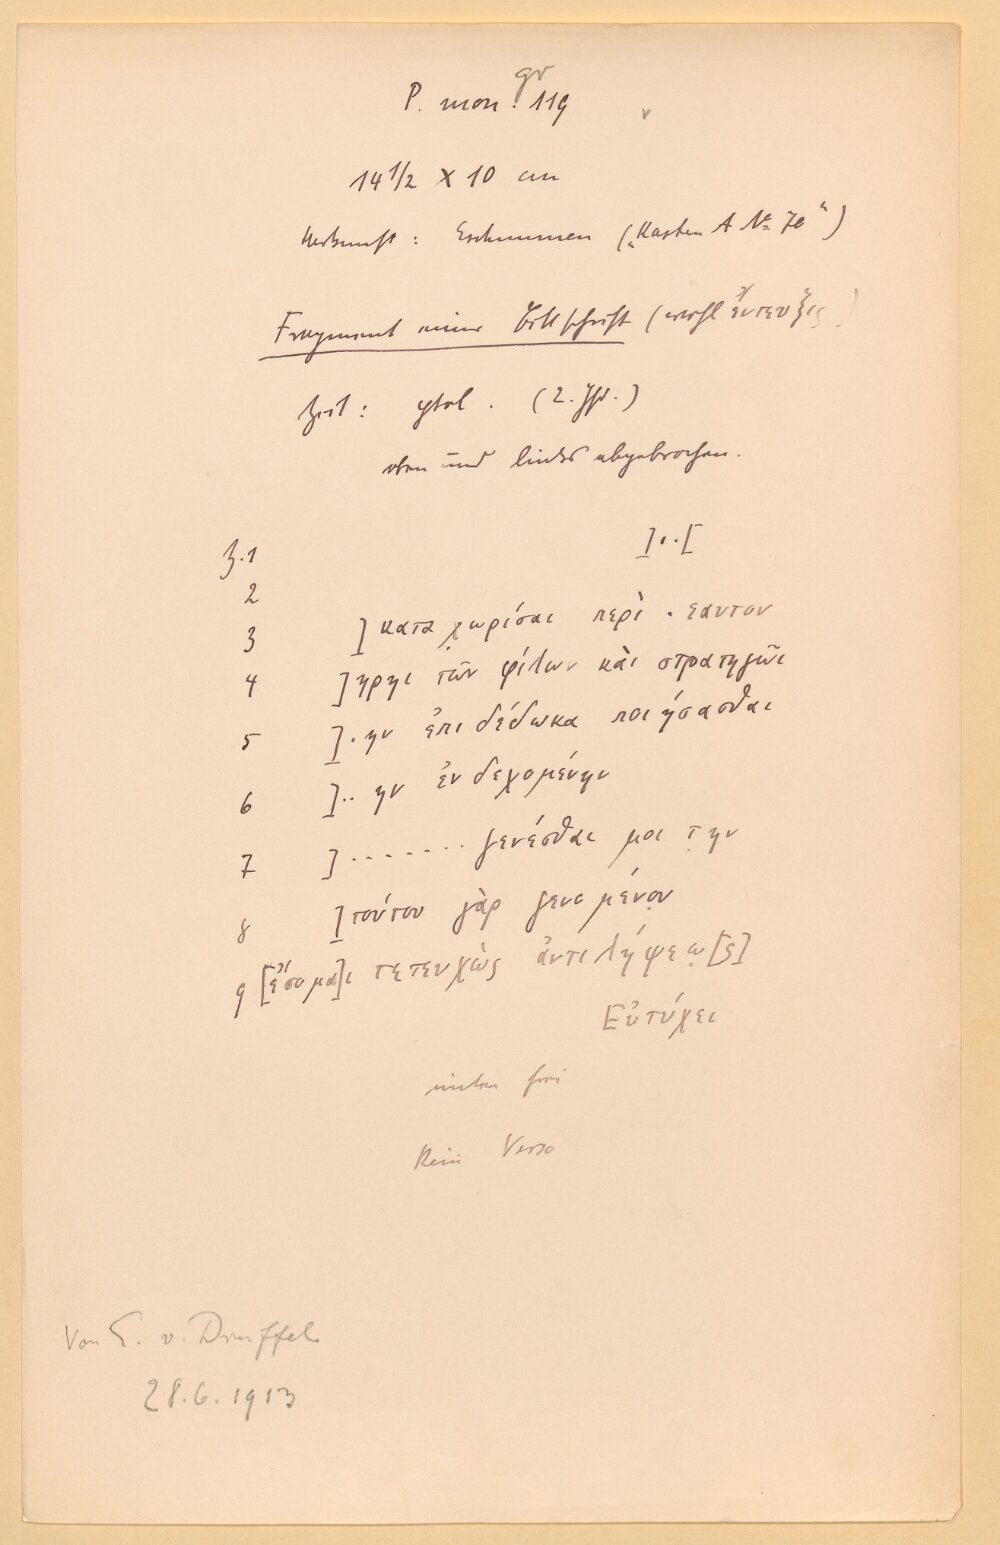 P. mon. gr 119
14 1/2 × 10 cm
Herkunft: Eschmunen („Kasten A No 7e“)
Fragment einer Bittschrift (wohl ἔντευξις)
Zeit: ptol. (2. Jhr.)
oben und links abgebrochen.
Z. 1 ]..[
2
3 ]καταχ̣ωρίσαι περὶ . εαυτον
4 ]ηρηι τῶν φίλων καὶ στρατηγῶι
5 ].ην ἐπιδέδωκα ποιήσασθαι
6 ]..ην ἐνδεχομένην
7 ]....... γενέσθαι μοι τ̣ην
8 ]τούτου γὰρ γενομένο̣υ
9 [ἔσομα]ι τε̣τευχὼς ἀντιλήψεω̣[ς]
Εὐτύχει
unten frei
Kein Verso
Von E. v. Druffel
28.6.1913